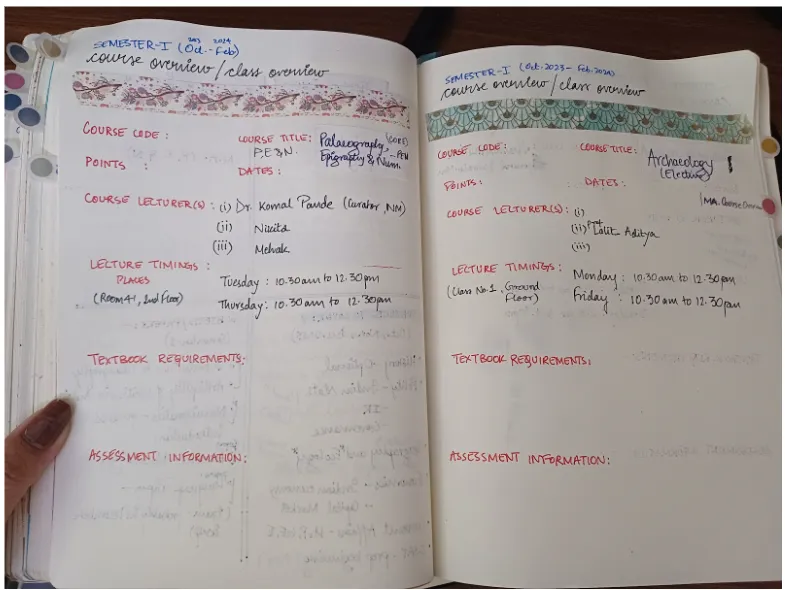 SEMESTER-I (Oct.- Feb)
2023 2024
course overview/class overview
COURSE CODE :
COURSE TITLE: Palaeography, (CORE)
P.E.&N.
Epigraphy & Num. -PEN
POINTS :
DATES:
COURSE LECTURER(S) : (i) Dr. Komal Pande (Curator, NM)
(ii) Nikita
(iii) Mehak
LECTURE TIMINGS :
PLACES
Tuesday : 10.30 am to 12.30 pm
(Room 41, 2nd Floor)
Thursday : 10.30 am to 12.30 pm
TEXTBOOK REQUIREMENTS:
ASSESSMENT INFORMATION:
SEMESTER-I (Oct.2023- Feb.2024)
course overview/class overview
COURSE CODE:
COURSE TITLE: Archaeology
(Elective)
POINTS:
DATES :
MA.
COURSE LECTURER(S): (i)
(ii) Lalit Aditya
(iii)
LECTURE TIMINGS:
Monday : 10.30 am to 12.30 pm
(Class No.1, Ground
Floor)
Friday : 10.30 am to 12.30 pm
TEXTBOOK REQUIREMENTS:
ASSESSMENT INFORMATION: